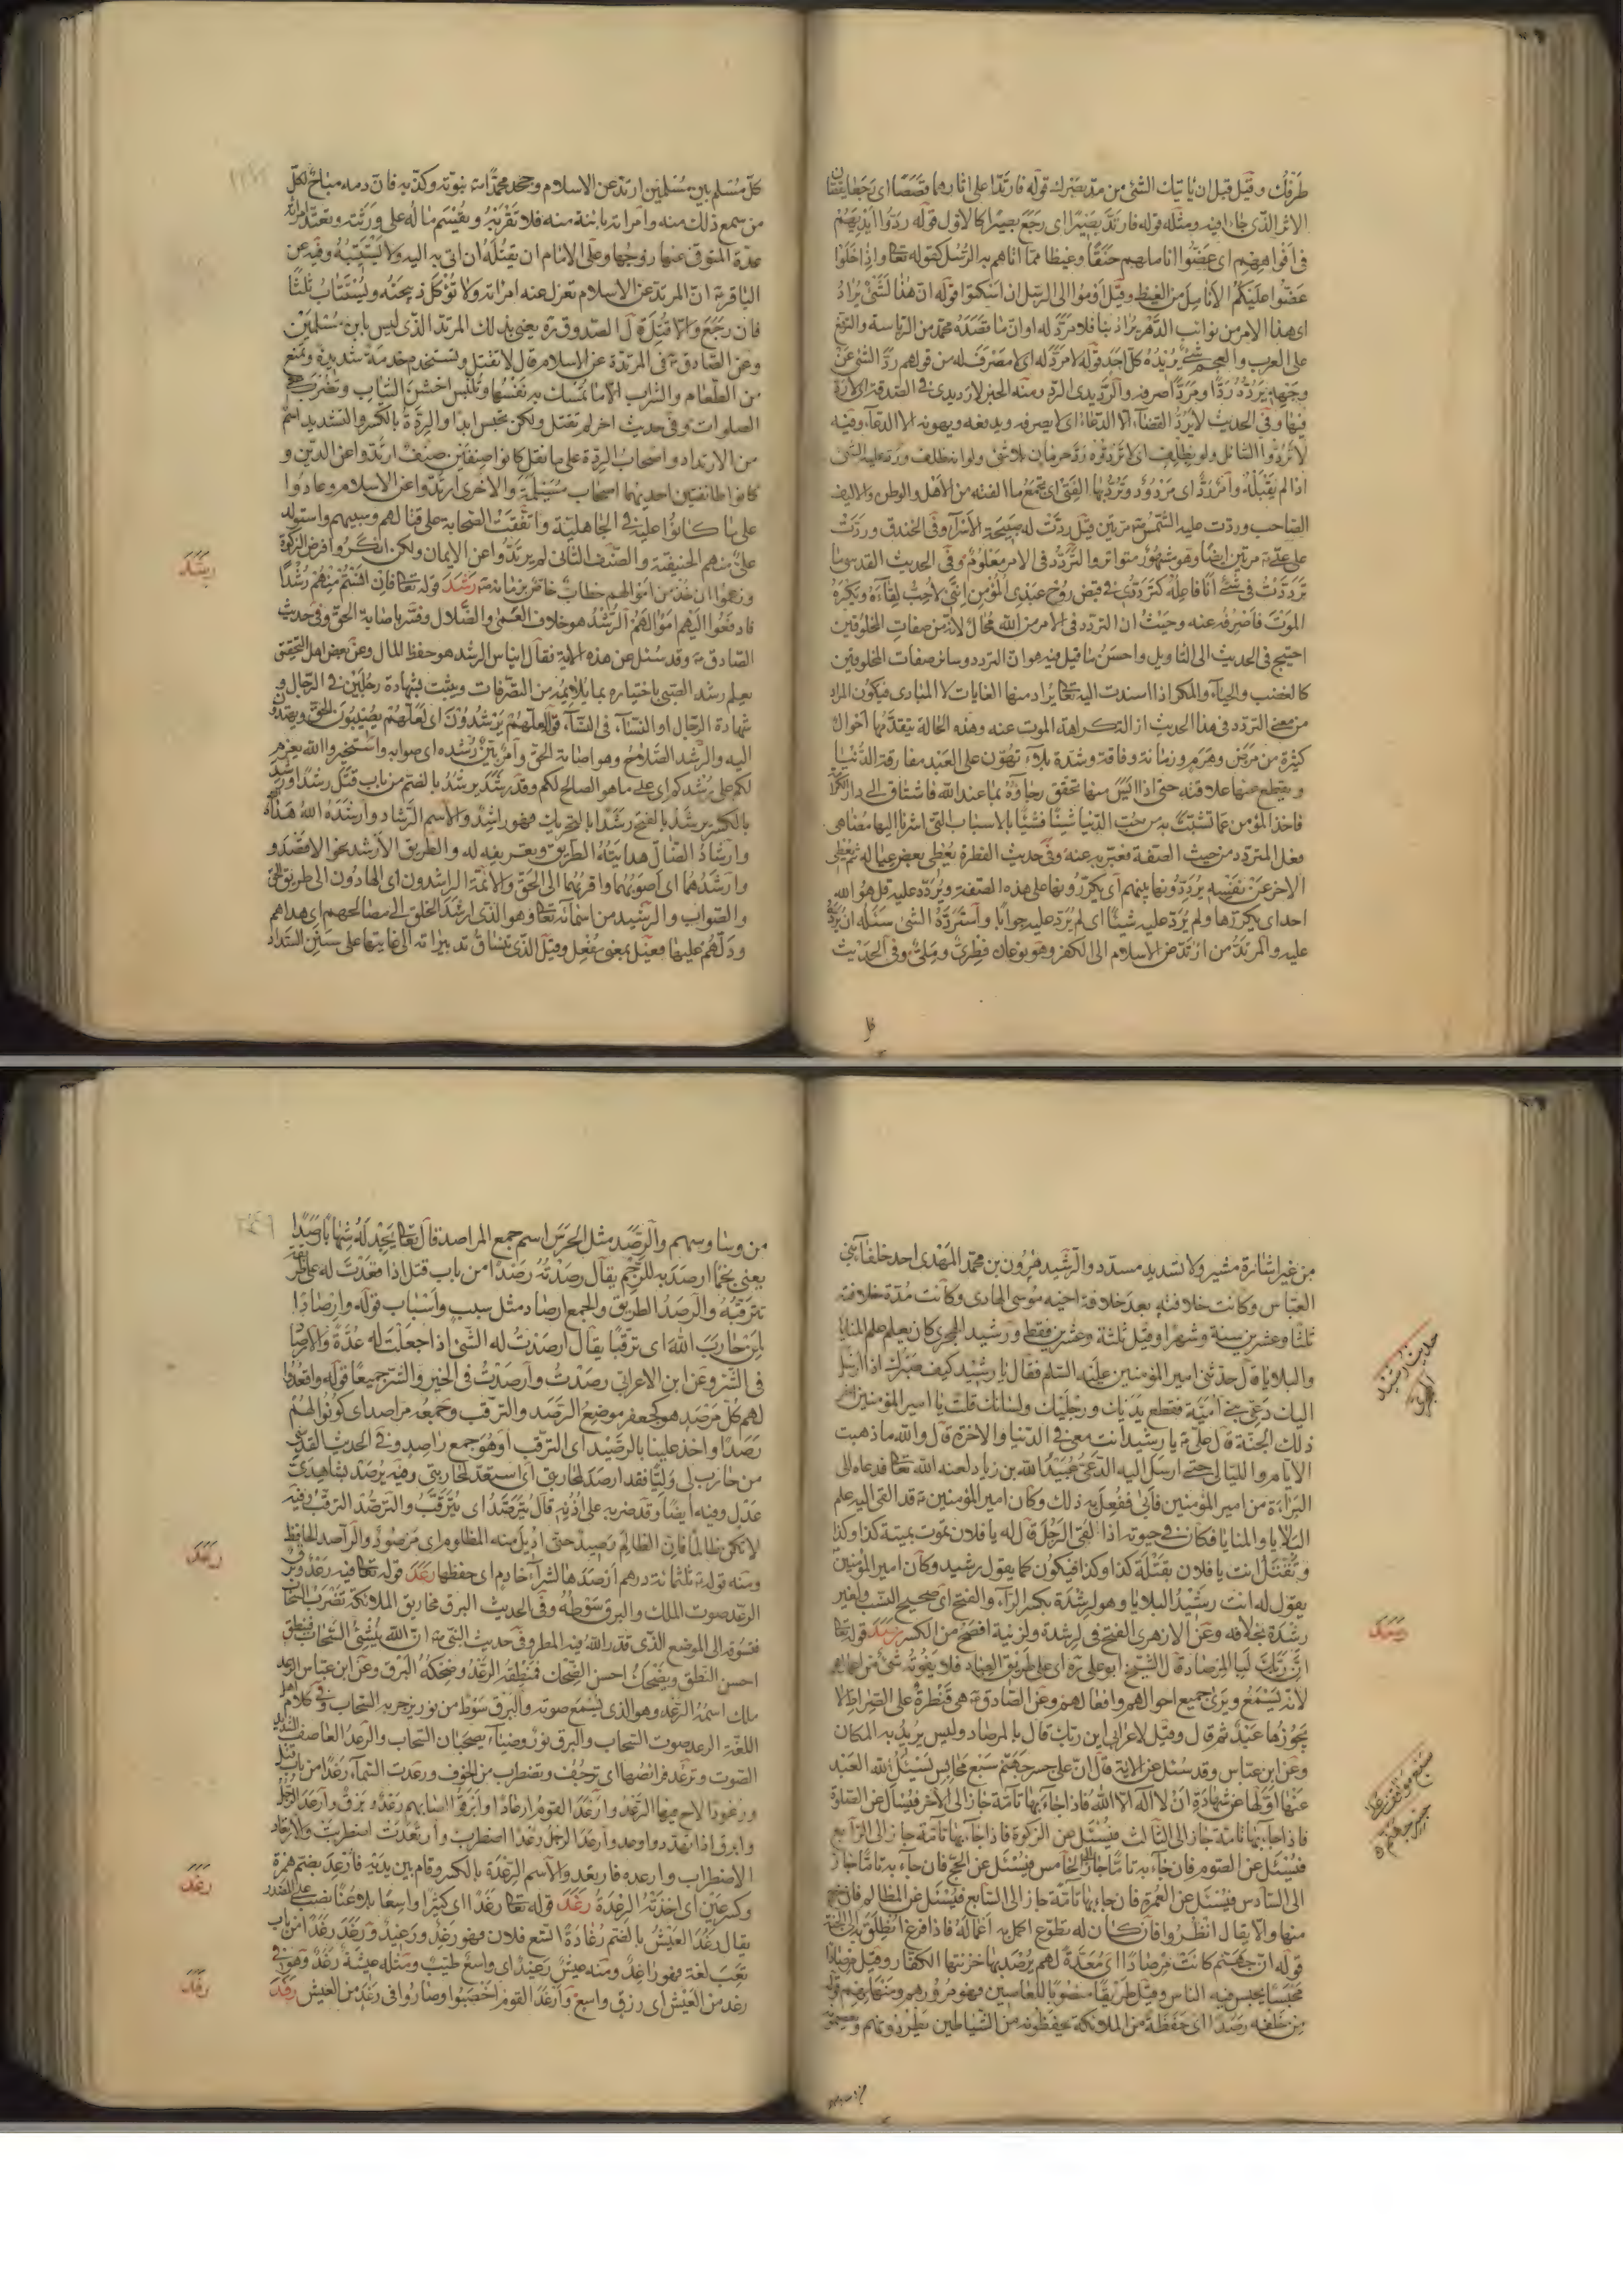 طرفك وقيل قبل ان ياتيك الشئ من مدّ بصرك قوله فارتدّا على اثارهما قصصًا اى رجعا يقصّان
الاثر الذى جاءا فيه ومثله قوله فارتدّ بصيرًا اى رجع بصيرًا كالاول قوله ردّوا ايديهم
فى افواههم اى عضّوا اناملهم حنقًا وغيظا ممّا اتاهم به الرسل كقوله تعا واذا خلوا
عضّوا عليكم الانامل من الغيظ وقيل اوموا الى الرسل ان اسكتوا قوله ان هذا لشئ يراد
اى هذا الامر من نوائب الدهر يراد بنا فلا مردّ له او ان ما قصده محمد من الرياسة والترفع
على العرب والعجم شئ يريده كل احد قوله لا مردّ له اى لا مصرف له من قولهم ردّ الشئ عن
وجهه يردّه ردّا ومردّا صرفه والرديدى الردّ ومنه الخبر لا رديدى فى الصدقة
فيها وفى الحديث لا يردّ القضاء الا الدعاء اى لا يصرفه ويدفعه ويهونه الا الدعاء وفيه
لا تردّوا السائل ولو بظلف اى لا تردّوه ردّ حرمان بلا شئ ولو انه ظلف وردّ عليه الشئ
اذا لم يقبله وامر ردّ اى مردود وتردّ بها الفتى اى تجمع ما الفته من الاهل والوطن والاليف
الصاحب وردّت عليه الشمس مرتين قيل ردّت له صبيحة الاسرا وفى الخندق وردّت
على علىّ مرتين ايضًا وهو مشهور متواتر والتردّد فى الامر معلوم وفى الحديث القدسى ما
تردّدت فى شئ انا فاعله كتردّدى فى قبض روح عبدى المؤمن انّى لاحبّ لقاءه ويكره
الموت فاصرفه عنه وحيث ان التردد فى الامر من الله محال لانه من صفات المخلوقين
احتيج فى الحديث الى التاويل واحسن ما قيل فيه هو ان التردد وسائر صفات المخلوقين
كالغضب والحياء والمكر اذا اسندت اليه تعا يراد منها الغايات لا المبادى فيكون المراد
من معنى التردد فى هذا الحديث ازالة كراهة الموت عنه وهذه الحالة يتقدّمها احوال
كثيرة من مرض وهرم وزمانة وفاقة وشدة بلاء تهون على العبد مفارقة الدنيا
ويقطع عنها علاقته حتى اذا ايس منها تحقق رجاؤه بما عند الله فاشتاق الى دار الكرامة
فاخذ المؤمن عما تشبّث به من حبّ الدنيا شيئًا فشيئًا بالاسباب التى اشرنا اليها مضاهى
فعل المتردد من حيث الصفة فعبّر به عنه وفى حديث الفطرة يعطى بعض عياله ثم يعطى
الاخر عن نفسه يردّدونها بينهم اى يكرّرونها على هذه الصفة ويردّد عليه قل هو الله
احد اى يكرّرها ولم يردّ عليه شيئًا اى لم يردّ عليه جوابًا واستردّه الشئ سئله ان يردّه
عليه والمرتدّ من ارتدّ عن الاسلام الى الكفر وهو نوعان فطرىّ وملّىّ وفى الحديث
كلّ مسلم بين مسلمين ارتدّ عن الاسلام وجحد محمدًا نبوّته وكذّبه فان دمه مباح لكلّ
من سمع ذلك منه وامراته بائنة منه فلا تقربه ويقسم ماله على ورثته وتعتدّ امراته
عدّة المتوفى عنها زوجها وعلى الامام ان يقتله ان اتى به اليه ولا يستتيبه وفيه عن
الباقر ان المرتدّ عن الاسلام تعزل عنه امراته ولا تؤكل ذبيحته ويستتاب ثلثًا
فان رجع والا قتل قال الصدوق ره يعنى بذلك المرتدّ الذى ليس بابن مسلمين
وعن الصادق فى المرتدّة عن الاسلام قال لا تقتل وتستخدم خدمة شديدة وتمنع
من الطعام والشراب الا ما تمسك به نفسها وتلبس اخشن الثياب وتضرب على
الصلوات وفى حديث اخر لم تقتل ولكن تحبس ابدًا والردّة بالكسر والتشديد اسم
من الارتداد واصحاب الردّة على ما نقل كانوا صنفين صنف ارتدّوا عن الدين و
كانوا طائفتين احديهما اصحاب مسيلمة والاخرى ارتدّوا عن الاسلام وعادوا
على ما كانوا عليه فى الجاهلية واتفقت الصحابة على قتالهم وسبيهم واستولد
علىّ منهم الحنفية والصنف الثانى لم يرتدّوا عن الايمان ولكن انكروا فرض الزكوة
وزعموا ان خذ من اموالهم خطاب خاص بزمانه رشد قوله تعا فان انستم منهم رشدًا
فادفعوا اليهم اموالهم الرشد هو خلاف العمى والضلال وفسّر باصابة الحق وفى حديث
الصادق وقد سئل عن هذه الاية فقال ايناس الرشد هو حفظ المال وعن بعض اهل التحقيق
يعلم رشد الصبى باختياره بما يلائمه من التصرفات ويثبت بشهادة رجلين فى الرجال و
شهادة الرجال او النساء فى النساء قوله لعلهم يرشدون اى لعلهم يصيبون الحق ويهتدون
اليه والرشد الصلاح وهو اصابة الحق وامر بيّن رشده اى صوابه واستخيروا الله يعزم
لكم على رشدكم اى على ما هو الصالح لكم وقد رشد يرشد بالضم من باب قتل رشدًا ورشد
بالكسر يرشد بالفتح رشدًا بالتحريك فهو راشد والاسم الرشاد وارشده الله هداه
وارشاد الضالّ هدايته الطريق وتعريفه له والطريق الارشد نحو الاقصد و
وارشدهما اى اصوبهما واقربهما الى الحق والائمة الراشدون اى الهادون الى طريق الحق
والصواب والرشيد من اسمائه تعا وهو الذى ارشد الخلق الى مصالحهم اى هداهم
ودلّهم عليها فعيل بمعنى مفعل وقيل الذى تنساق تدبيراته الى غاياتها على سنن السداد
رشد
من غير اشارة مشير ولا تسديد مسدّد والرشيد هرون بن محمد المهدى احد خلفاء بنى
العباس وكانت خلافته بعد خلافة اخيه موسى الهادى وكانت مدّة خلافته
ثلثا وعشرين سنة وشهرا وقيل ثلثة وعشرين فقط ورشيد الهجرى كان يعلم علم المنايا
والبلايا قال حدثنى امير المؤمنين عليه السلم فقال يا رشيد كيف صبرك اذا ارسل
اليك دعىّ بنى اميّة فقطع يديك ورجليك ولسانك قلت يا امير المؤمنين اخر
ذلك الجنة قال علىّ يا رشيد انت معى فى الدنيا والاخرة قال والله ما ذهبت
الايام والليالى حتى ارسل اليه الدعىّ عبيد الله بن زياد لعنه الله تعا فدعاه الى
البراءة من امير المؤمنين فابى ففعل به ذلك وكان امير المؤمنين قد القى اليه علم
البلايا والمنايا فكان فى حيوته اذا لقى الرجل قال له يا فلان تموت بميتة كذا وكذا
وتقتل انت يا فلان بقتلة كذا وكذا فيكون كما يقول رشيد وكان امير المؤمنين
يقول له انت رشيد البلايا وهو لرشدة بكسر الراء والفتح اى صحيح النسب ولغير
رشدة بخلافه وعن الازهرى الفتح فى لرشدة ولزنية افصح من الكسر رصد قوله تعا
انّ ربّك لبالمرصاد قال الشيخ ابو على ره اى على طريق العباد فلا يفوته شئ من اعمالهم
لانه يسمع ويرى جميع احوالهم وافعالهم وعن الصادق هى قنطرة على الصراط لا
يجوزها عبد ثم قال وقيل لاعرابى اين ربّك قال بالمرصاد وليس يريد به المكان
وعن ابن عباس وقد سئل عن الاية قال انّ على جسر جهنم سبع محابس يسئل الله العبد
عنها اولها عن شهادة ان لا اله الا الله فاذا جاء بها تامّة جاز الى الاخر فيسأل عن الصلوة
فاذا جاء بها تامّة جاز الى الثالث فيسئل عن الزكوة فاذا جاء بها تامّة جاز الى الرابع
فيسئل عن الصوم فان جاء به تامّا جاز الى الخامس فيسئل عن الحج فان جاء به تامّا جاز
الى السادس فيسئل عن العمرة فان جاء بها تامّة جاز الى السابع فيسئل عن المظالم فان خرج
منها والا يقال انظروا فان كان له تطوّع اكمل به اعماله فاذا فرغ انطلق به الى الجنة
قوله ان جهنم كانت مرصادًا اى معدّة لهم يرصد بها خزنتها الكفار وقيل مرصادًا
محبسًا يحبس فيه الناس وقيل طريقًا منصوبًا للعاصين فهو مرورهم ومنهلهم قوله
من خلفه رصدًا اى حفظة من الملائكة يحفظونه من الشياطين يطردونهم ويعصمونه
حديث رشيد الهجرى
رصد
من وساوسهم والرصد مثل الحرس اسم جمع المراصد قال تعا يجد له شهابًا رصدًا
يعنى نجمًا ارصد به للرجم يقال رصدته رصدًا من باب قتل اذا قعدت له على طريقه
تترقّبه والرصد الطريق والجمع ارصاد مثل سبب واسباب قوله وارصادًا
لمن حارب الله اى ترقّبًا يقال ارصدت له الشئ اذا جعلت له عدّة والارصاد
فى الشر وعن ابن الاعرابى رصدت وارصدت فى الخير والشر جميعًا قوله واقعدوا
لهم كل مرصد هو كجعفر موضع الرصد والترقب وجمعه مراصد اى كونوا لهم
رصدًا واخذ علينا بالرصيد اى الترقب او هو جمع راصد وفى الحديث القدسى
من حارب لى وليّا فقد ارصد لمحاربتى اى استعدّ لمحاربتى وفيه يرصد بشاهدى
عدل وفيه ايضًا وقد ضربه على اذنيه قال يترصّد اى يترقّب والترصّد الترقب وفيه
لا تكن ظالمًا فان الظالم رصيد حتى اديل منه المظلوم اى مرصود والراصد الحافظ
ومنه قوله ثلثمائة درهم ارصدها لشراء خادم اى حفظها رعد قوله تعا فيه رعد وبرق
الرعد صوت الملك والبرق سوطه وفى الحديث البرق مخاريق الملائكة تضرب السحاب
فتسوقه الى الموضع الذى قدّر الله فيه المطر وفى حديث النبى ان الله ينشئ السحاب فينطق
احسن النطق ويضحك احسن الضحك فمنطقه الرعد وضحكه البرق وعن ابن عباس الرعد
ملك اسمه الرعد وهو الذى يسمع صوته والبرق سوط من نور يزجر به السحاب وفى كلام اهل
اللغة الرعد صوت السحاب والبرق نور وضياء يصحبان السحاب والرعد العاصف الشديد
الصوت وترعد فرائصها اى ترجف وتضطرب من الخوف ورعدت السماء رعدًا من باب قتل
ورعودًا لاح منها الرعد وارعد القوم ارعادًا وابرقوا اصابهم رعد وبرق وارعد الرجل
وابرق اذا تهدد واوعد وارعد الرجل رعدًا اضطرب وارتعدت اضطربت والارتعاد
الاضطراب وارعده فارتعد والاسم الرعدة بالكسر وقام بين يديه فارعد بضم همزة
وكسر عين اى اخذته الرعدة رغد قوله تعا رغدًا اى كثيرًا واسعًا بلا عناء نصب على المصدر
يقال رغد العيش بالضم رغادة اتسع فلان فهو رغد ورغيد ورغد رغدًا من باب
تعب لغة فهو راغد ومنه عيش رغيد اى واسع طيب ومثله عيشة رغد وهو فى
رغد من العيش اى رزق واسع وارغد القوم اخصبوا وصاروا فى رغد من العيش رفد
رعد
رغد
رفد